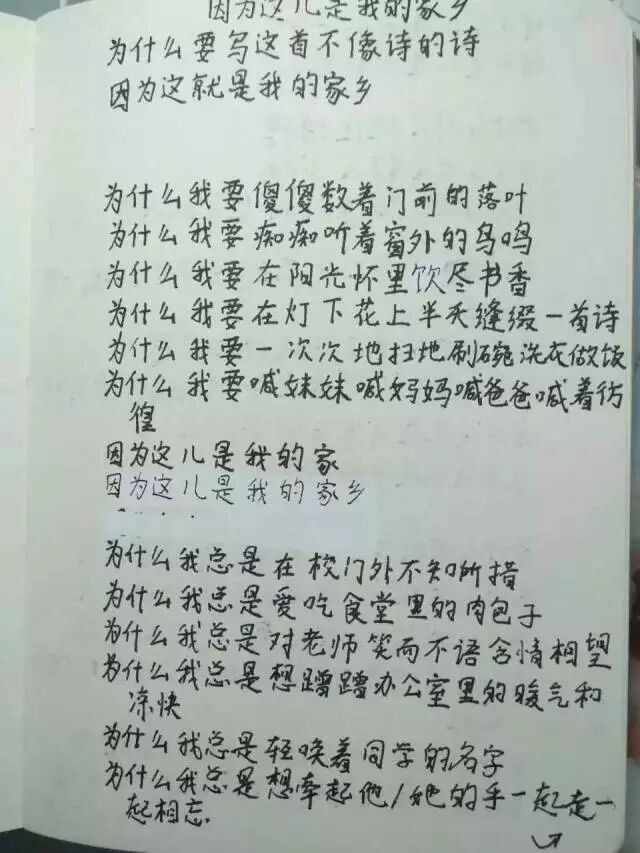 因为这儿是我的家乡
为什么要写这首不像诗的诗
因为这就是我的家乡
为什么我要傻傻数着门前的落叶
为什么我要痴痴听着窗外的鸟鸣
为什么我要在阳光怀里饮尽书香
为什么我要在灯下花上半天缝缀一首诗
为什么我要一次次地扫地刷碗洗衣做饭
为什么我要喊妹妹喊妈妈喊爸爸喊着彷
徨
因为这儿是我的家
因为这儿是我的家乡
······
为什么我总是在校门外不知所措
为什么我总是爱吃食堂里的肉包子
为什么我总是对老师笑而不语含情相望
为什么我总是想蹭蹭办公室里的暖气和
凉快
为什么我总是轻唤着同学的名字
为什么我总是想牵起他/她的手一起走一
起相忘